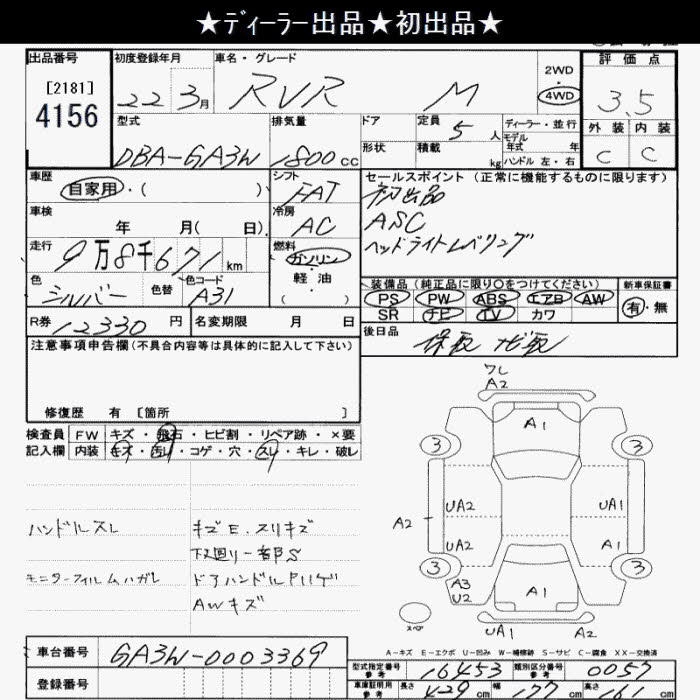 ★ディーラー出品★初出品★
出品番号
[2181]
4156
初度登録年月
22 3月
車名・グレード
RVR M
2WD
・
4WD
評価点
3.5
外装 内装
C C
型式
DBA-GA3W
排気量
1800cc
ドア
定員 5人
形状
積載 kg
ディーラー・並行
モデル
年式 年
ハンドル 左・右
車歴
自家用・( )
シフト
FAT
セールスポイント(正常に機能するものに限ります)
初出品
ASC
ヘッドライトレベリング
車検
年 月( 日)
冷房
AC
走行
9万8千671km
燃料
ガソリン
・
軽油
( )
色
シルバー
色替
色コード
A31
装備品(純正品に限り○をつけてください)
PS PW ABS エアB AW
SR ナビ TV カワ
新車保証書
有・無
R券 12330円
名変期限 月 日
後日品
保取 ナビ取
注意事項申告欄(不具合内容等は具体的に記入して下さい)
修復歴 有 [箇所 ]
検査員
記入欄
FW キズ・飛石・ヒビ割・リペア跡・×要
内装 キズ・汚れ・コゲ・穴・スレ・キレ・破レ
ハンドルスレ
モニターフィルムハガレ
キズE.スリキズ
下廻り一部S
ドアハンドルPハゲ
AWキズ
ワレ
A2
A1
3 3
UA2 UA1
A2
UA2 A1
3 3
A3
U2
A1
スペア
UA1 A2
A-キズ E-エクボ U-凹み W-補修跡 S-サビ C-腐食 XX-交換済
車台番号 GA3W-0003369
登録番号
型式指定番号
参考
16453
類別区分番号
参考
0057
車庫証明用
参考
長さ 429cm 幅 177cm 高さ 161cm